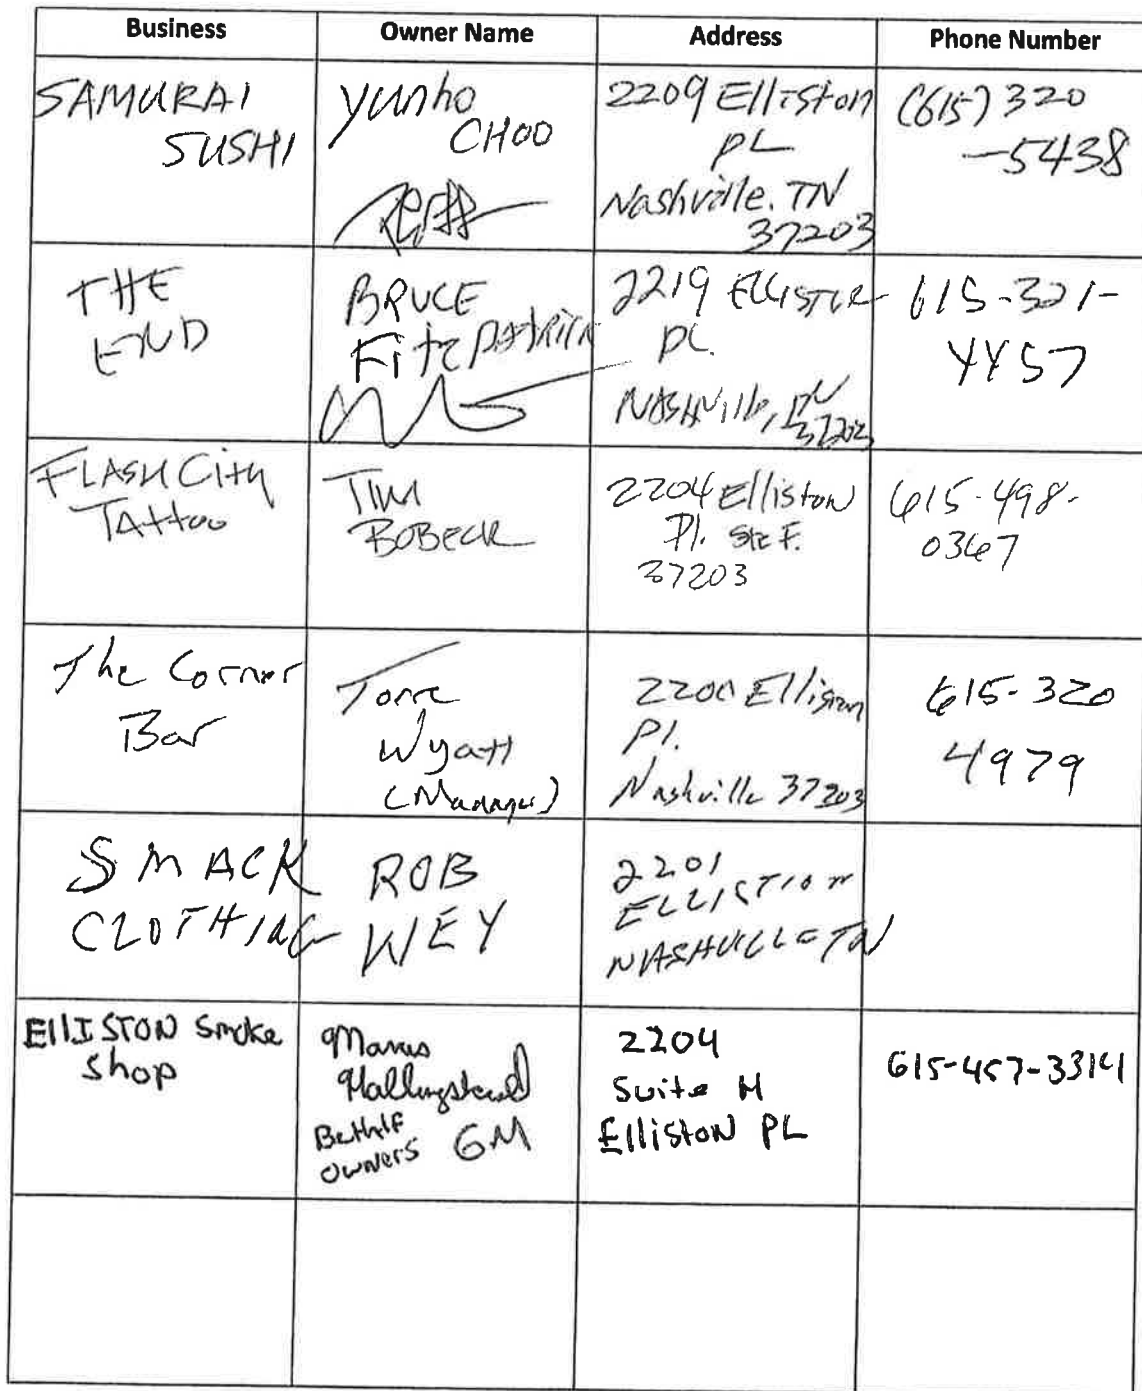 Business Owner Name Address Phone Number
SAMURAI
SUSHI
Yunho
CHOO
2209 Elliston
PL
Nashville. TN
37203
(615) 320
-5438
THE
END
BRUCE
Fitzpatrick
2219 Elliston
PL.
NAShville, TN
37203
615-321-
4457
FLASH City
TAttoo
Tim
BOBECK
2204 Elliston
Pl. Ste F.
37203
615-498-
0367
The Corner
Bar
Torre
Wyatt
(Manager)
2200 Elliston
Pl.
Nashville 37203
615-320
4979
SMACK
CLOTHING
ROB
WEY
2201
ELLISTION
NASHVILLE TN
EllISTON Smoke
Shop
Marcus
Hallingstead
Behalf
owners GM
2204
Suite H
Elliston PL
615-457-3314